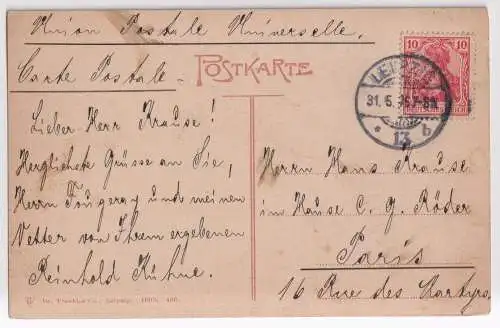 Union Postale Universelle.
Carte Postale.
POSTKARTE
10 10
LEIPZIG
31.5.
13 b
Lieber Herr Krause!
Herzlichste Grüsse an Sie,
Herrn Fougeray und meinen
Vetter von Ihrem ergebenen
Reinhold Kühne.
Herrn Hans Krause
im Hause C. G. Röder
Paris
16 Rue des Martyrs.
Leipzig